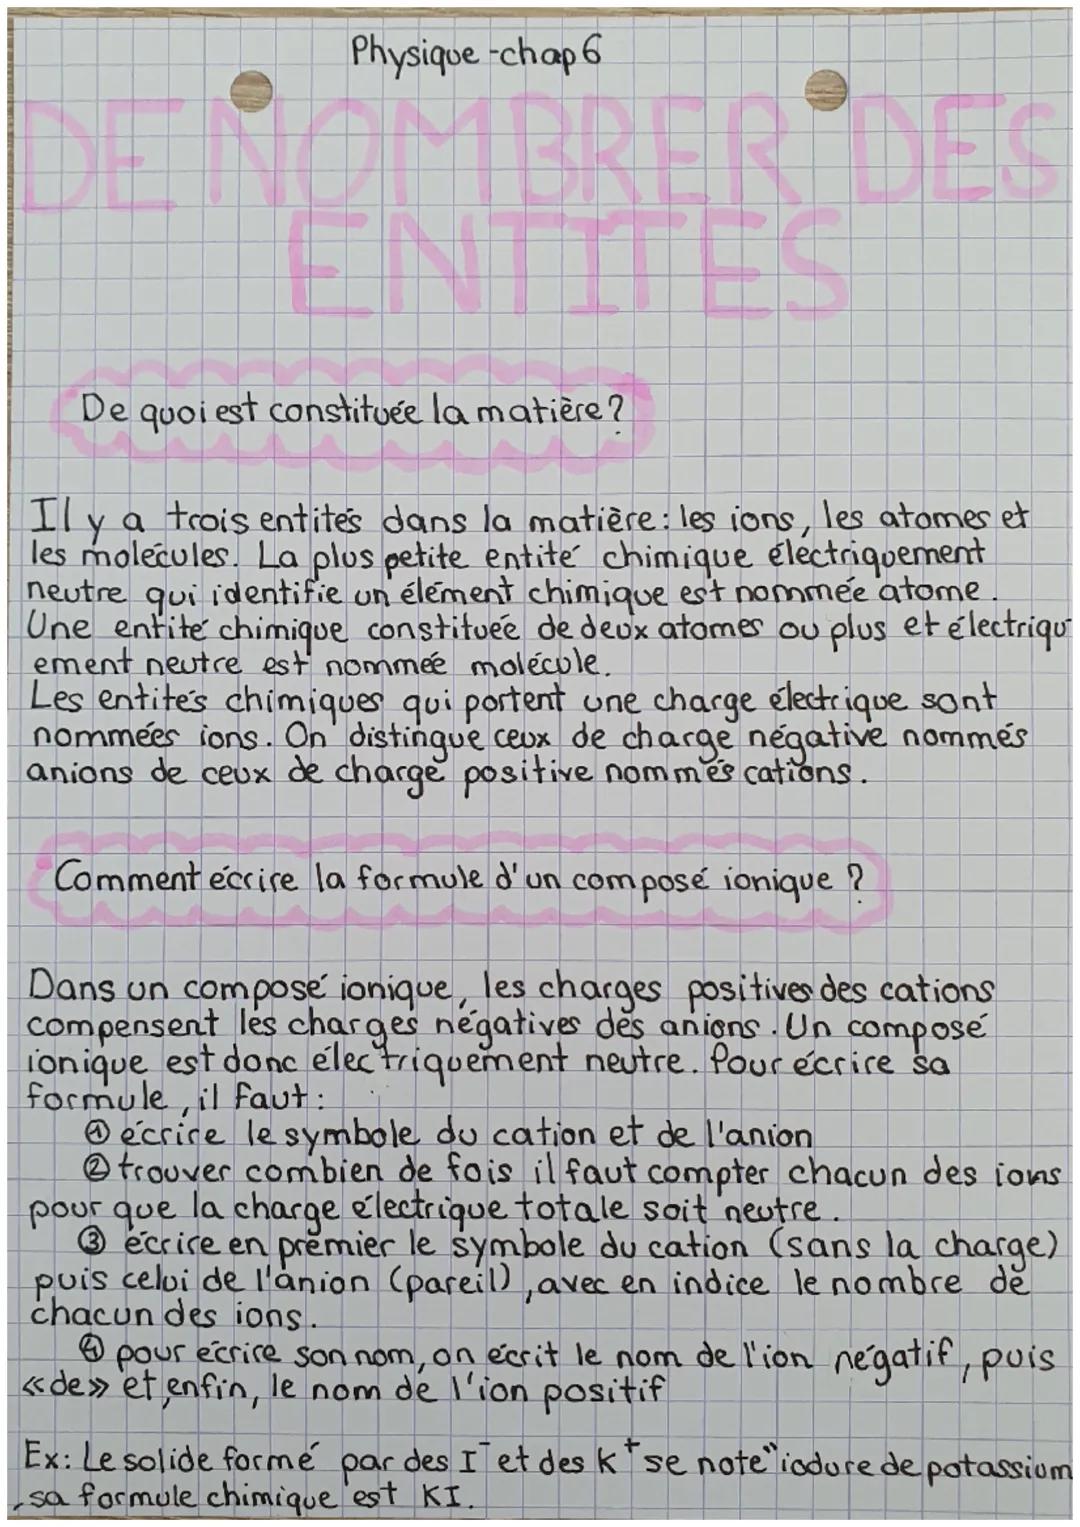 Physique - chap 6
DENOMBRER DES
ENTITES
De quoi est constituée la matière ?
Il y a trois entités dans la matière : les ions, les atomes et
les molécules. La plus petite entité chimique électriquement
neutre qui identifie un élément chimique est nommée atome.
Une entité chimique constituée de deux atomes ou plus et électriqu
ement neutre est nommée molécule.
Les entités chimiques qui portent une charge électrique sont
nommées ions. On distingue ceux de charge négative nommés
anions de ceux de charge positive nommés cations.
Comment écrire la formule d'un composé ionique ?
Dans un composé ionique, les charges positives des cations
compensent les charges négatives des anions. Un composé
ionique est donc électriquement neutre. Pour écrire sa
formule, il faut :
① écrire le symbole du cation et de l'anion
② trouver combien de fois il faut compter chacun des ions
pour que la charge électrique totale soit neutre.
③ écrire en premier le symbole du cation (sans la charge)
puis celui de l'anion (pareil), avec en indice le nombre de
chacun des ions.
④ pour écrire son nom, on écrit le nom de l'ion négatif, puis
«de» et, enfin, le nom de l'ion positif
Ex: Le solide formé par des I⁻ et des K⁺ se note "iodure de potassium
, sa formule chimique est KI.